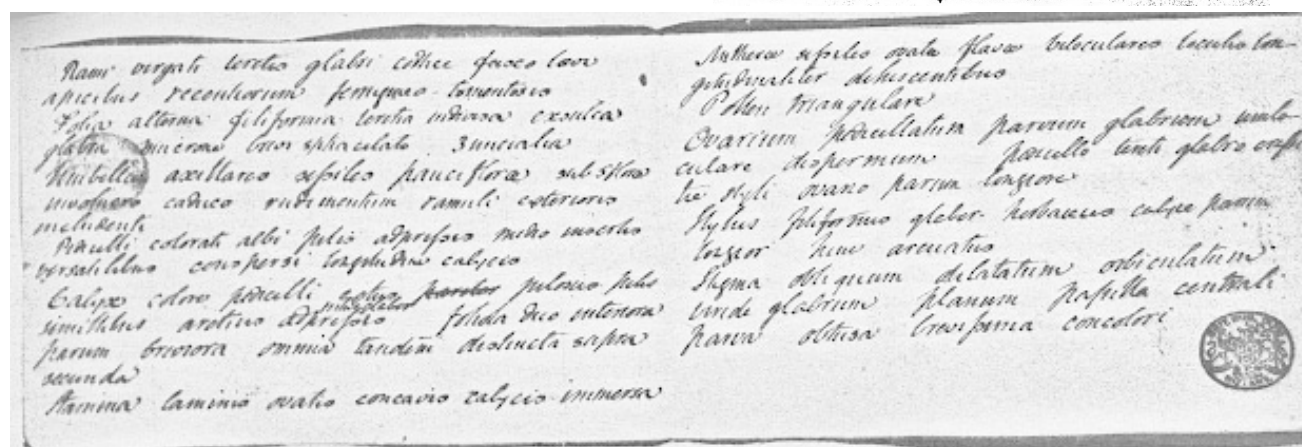 Rami virgati teretes glabri cortice fusco laevi
apicibus recentiorum ferrugineo-tomentosis
Folia alterna filiformia teretia indivisa exsulca
glabra mucrone brevi sphacelato 3uncialia
Umbellae axillares sessiles pauciflorae sub 5florae
involucro caduco rudimentum ramuli exterioris
includente
Pedicelli colorati albi pilis adpressis medio insertis
versatilibus conspersi longitudine calycis
Calyx colore pedicelli pilosus pilis
similibus arctius adpressis foliola duo interiora
parum breviora omnia tandem distincta supra
secunda
Stamina laminis ovatis concavis calycis immersa
Antherae sessiles ovatae flavae biloculares loculis lon-
gitudinaliter dehiscentibus
Pollen triangulare
Ovarium pedicellatum parvum glabrum unilo-
culare dispermum pedicello tenui glabro
styli ovario parum longiore
Stylus filiformis glaber herbaceus calyce parum
longior hinc arcuatus
Stigma obliquum dilatatum orbiculatum
viride glabrum planum papilla centrali
parva obtusa brevissima concolori